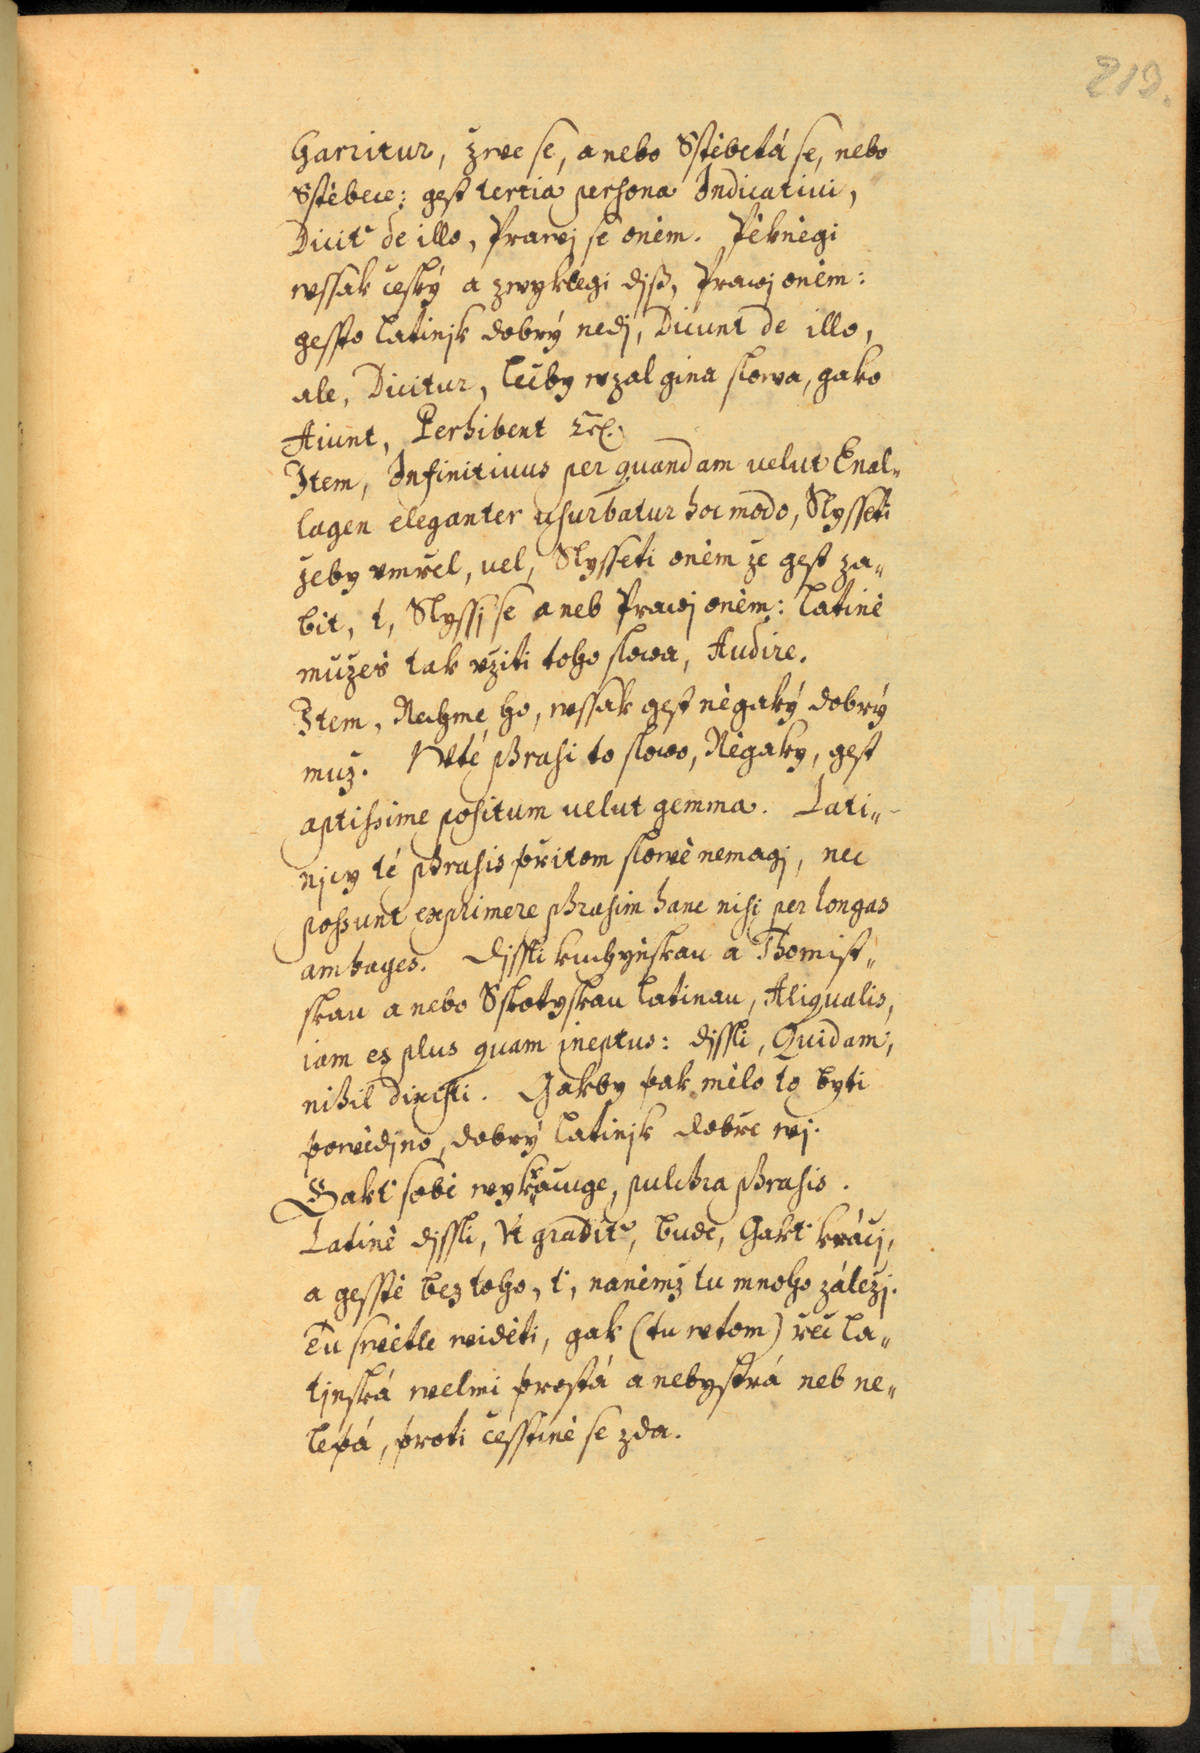 219.
Garritur, žrwe se, anebo Sstěbetá se, nebo
Sstěbece: gest tertia persona Indicatiui,
Dicit' de illo, Prawj se oněm. Pěkněgi
wssak český a zwyklegi djß, Prawj oněm:
gessto latinjk dobrý nedj, Dicunt de illo,
ale, Dicitur, lečby wzal gina slowa, gako
Aiunt, Perhibent etc.
Item, Infinitiuus per quandam uelut Enal„
lagen eleganter usurbatur hoc modo, Slysseti
žeby vmřel, uel, Slysseti oněm že gest za„
bit, t, Slyssj se aneb Prawj oněm: latině
můžeš tak vžiti toho slowa, Audire.
Item, Nechme ho, wssak gest něgaký dobrý
muž. W té phrasi to slowo, Něgaky, gest
aptissime positum uelut gemma. Lati„
njcy té phrasis při tom slowě nemagj, nec
possunt exprimere phrasim hanc nisi per longas
ambages. Djssli kuchyňskau a Thomist„
skau anebo Sskotyskau latinau, Aliqualis,
iam es plus quam ineptus: djssli, Quidam,
nihil dixisti. Gakby pak mělo to byti
powědjno, dobrý latinjk dobře wj.
Gakť sobě wykračuge, pulchra phrasis.
Latině djssli, Vt gradit', bude, Gakť kráčj,
a gesstě bez toho, ť, naněmž tu mnoho záležj.
Tu swětle widěti, gak (tu w tom) řeč la„
tjnská welmi prostá a nebystrá neb ne„
lepá, proti češstině se zda.
MZK
MZK